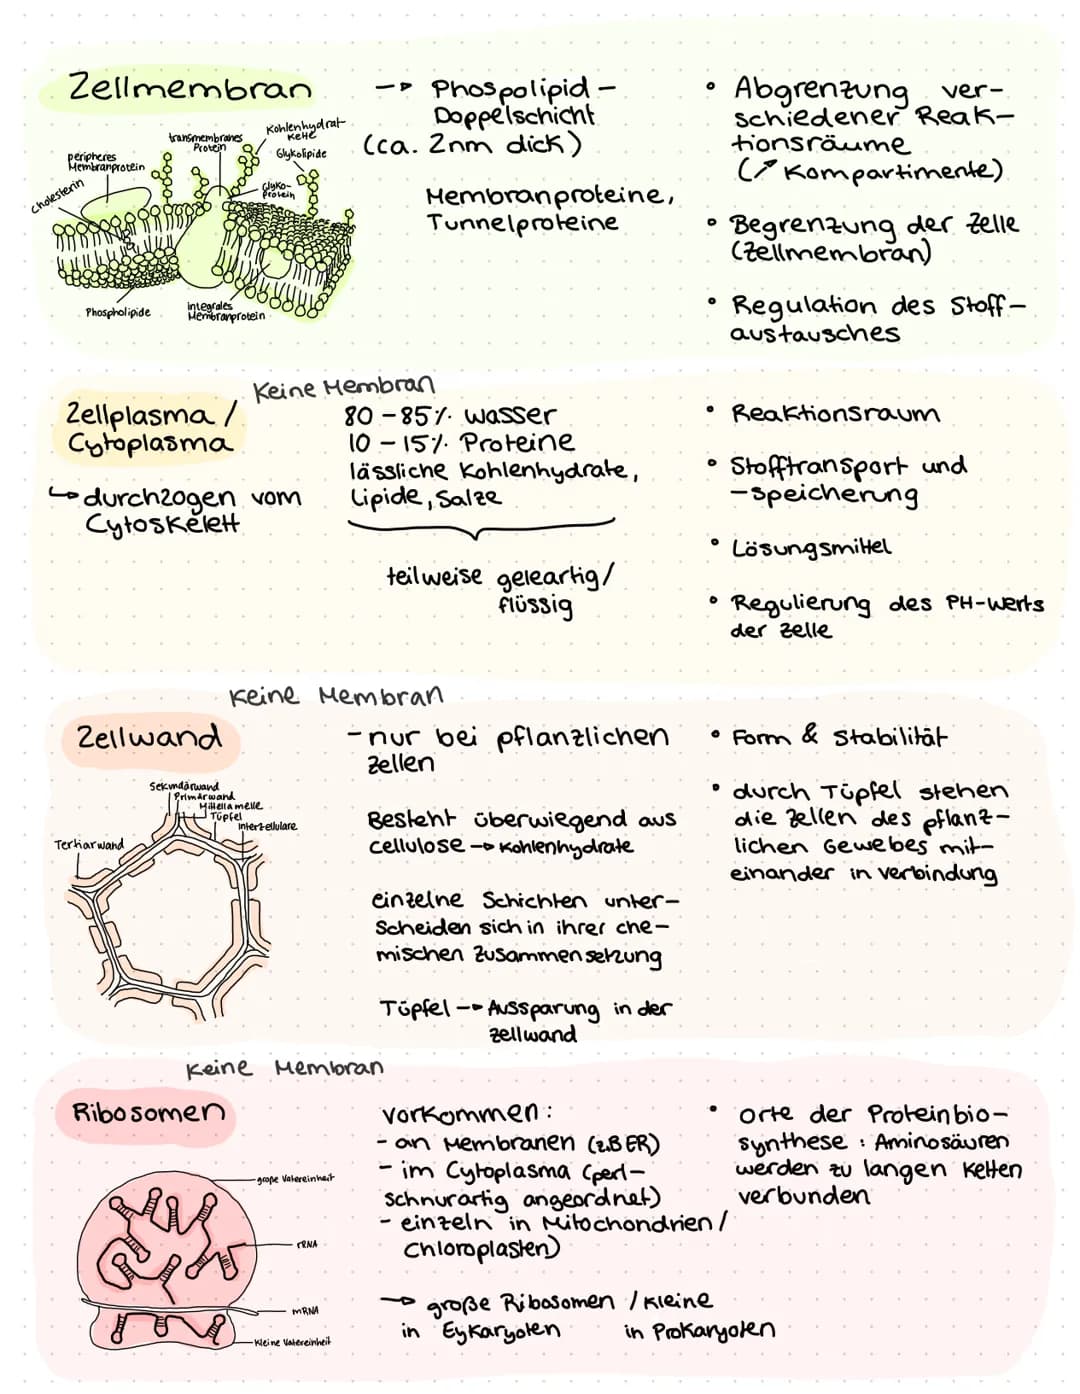 Zellmembran
transmembranes
Protein
Kohlenhydrat-
kette
Glykolipide
peripheres
Membranprotein
Glyko-
protein
Cholesterin
Phospholipide
integrales
Membranprotein
Phospolipid-
Doppelschicht
(ca. 2nm dick)
Membranproteine,
Tunnelproteine
• Abgrenzung ver-
schiedener Reak-
tionsräume
(↗ Kompartimente)
• Begrenzung der Zelle
(Zellmembran)
• Regulation des Stoff-
austausches
Keine Membran
Zellplasma /
Cytoplasma
↳ durchzogen vom
Cytoskelett
80-85% Wasser
10-15% Proteine
lässliche Kohlenhydrate,
Lipide, Salze
teilweise geleartig/
flüssig
• Reaktionsraum
• Stofftransport und
-speicherung
• Lösungsmittel
• Regulierung des PH-Werts
der Zelle
Keine Membran
Zellwand
Sekundärwand
Primärwand
Mittellamelle
Tüpfel
Interzellulare
Tertiärwand
- nur bei pflanzlichen
Zellen
Besteht überwiegend aus
Cellulose → Kohlenhydrate
einzelne Schichten unter-
scheiden sich in ihrer che-
mischen Zusammensetzung
Tüpfel → Aussparung in der
Zellwand
• Form & Stabilität
• durch Tüpfel stehen
die Zellen des pflanz-
lichen Gewebes mit-
einander in Verbindung
Keine Membran
Ribosomen
große Untereinheit
rRNA
mRNA
Kleine Untereinheit
Vorkommen:
- an Membranen (z.B ER)
- im Cytoplasma (perl-
schnurartig angeordnet)
- einzeln in Mitochondrien/
Chloroplasten)
→ große Ribosomen / Kleine
in Eykaryoten in Prokaryoten
• Orte der Proteinbio-
synthese : Aminosäuren
werden zu langen Ketten
verbunden